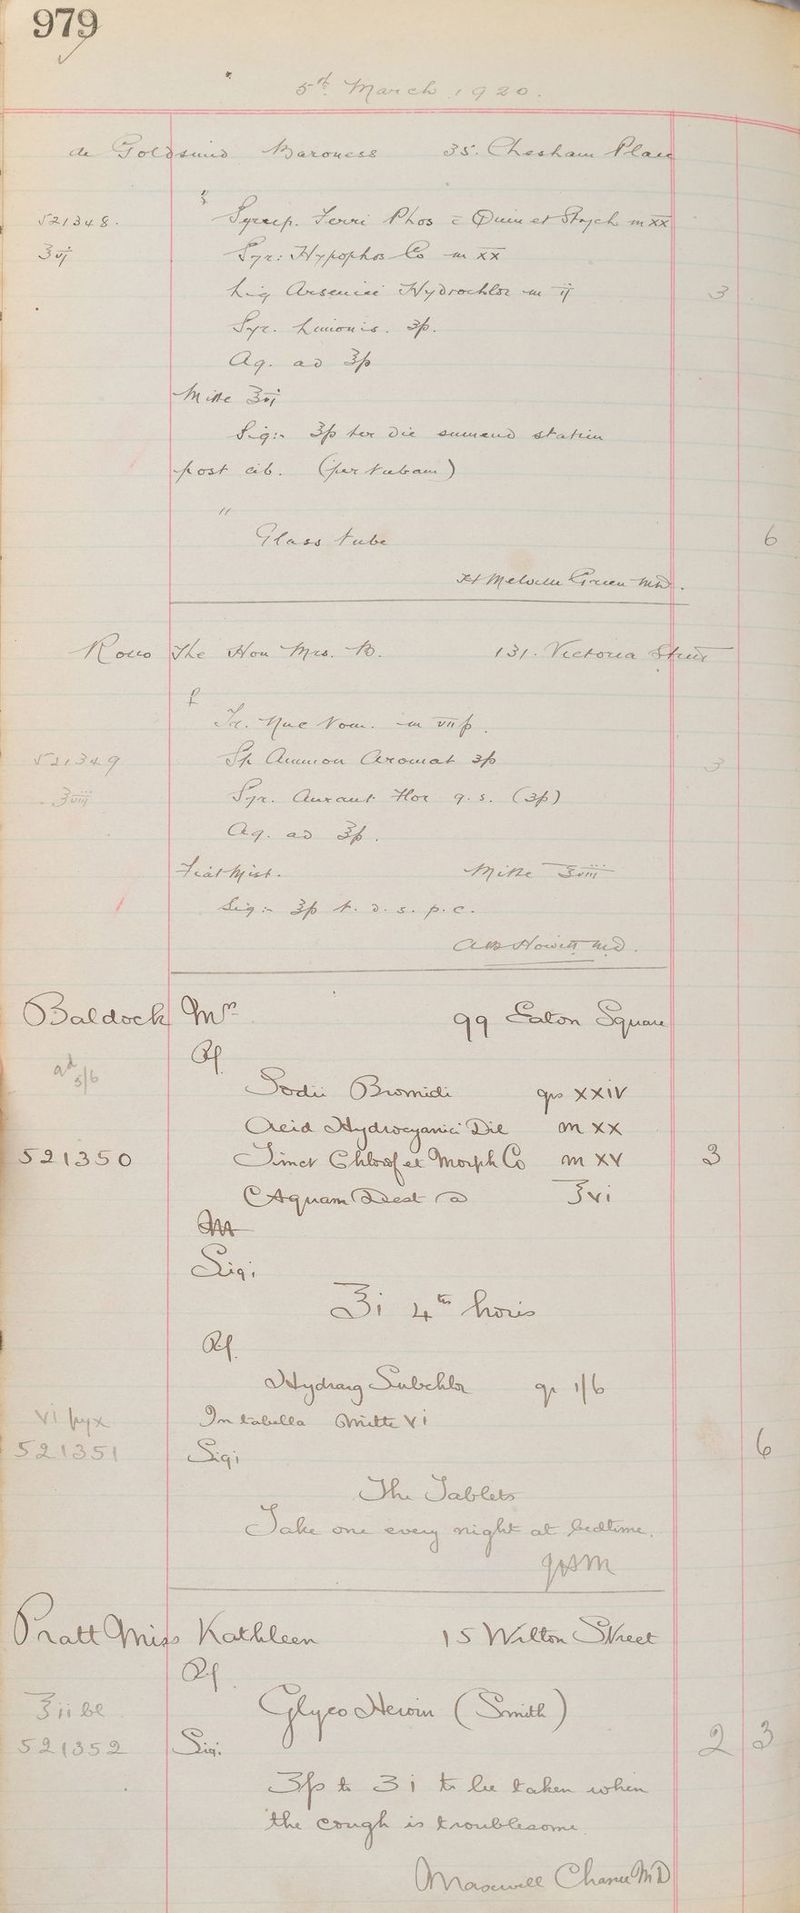 979
5th March 1920.
de Goldsmid Baroness 35. Chesham Place
521348. Syrup. Ferri Phos c̄ Quin et Strych m xx
ʒvj Syr: Hypophos Co m xx
Liq Arsenici Hydrochlor m ij 3
Syr. Limonis. ʒſs.
Aq. ad ℥ſs
Mitte ℥vj
Sig:- ℥ſs ter die sumend statim
post cib. (per tubam)
"
Glass tube 6
H Melville Green MD.
The Hon Mrs. B. 131. Victoria Street
Tr. Nuc Vom. m viiſs.
521349 Sp Ammon Aromat ʒſs 3
℥viij Syr. Aurant Flor q.s. (ʒſs)
Aq. ad ℥ſs.
Fiat Mist. Mitte ℥viii
Sig:- ℥ſs t.d.s.p.c.
Howitt MD.
Baldock Mrs 99 Eaton Square
Rx
ad 5/6
Sodii Bromidi grs XXIV
Acid Hydrocyanici Dil m XX
521350 Tinct Chlorof et Morph Co m XV 3
Aquam Dest ad ℥vi
M
Sig:
℥i 4tis horis
Rx
Hydrarg Subchlor gr 1/6
vi pyx In tabella Mitte VI
521351 Sig: 6
The Tablets
Take one every night at bedtime.
Pratt Miss Kathleen 15 Wilton Street
Rx
℥ii bl Glyco Heroin (Smith)
521352 Sig: 2 3
ʒſs to ʒi to be taken when
the cough is troublesome.
Maxwell Chance MD